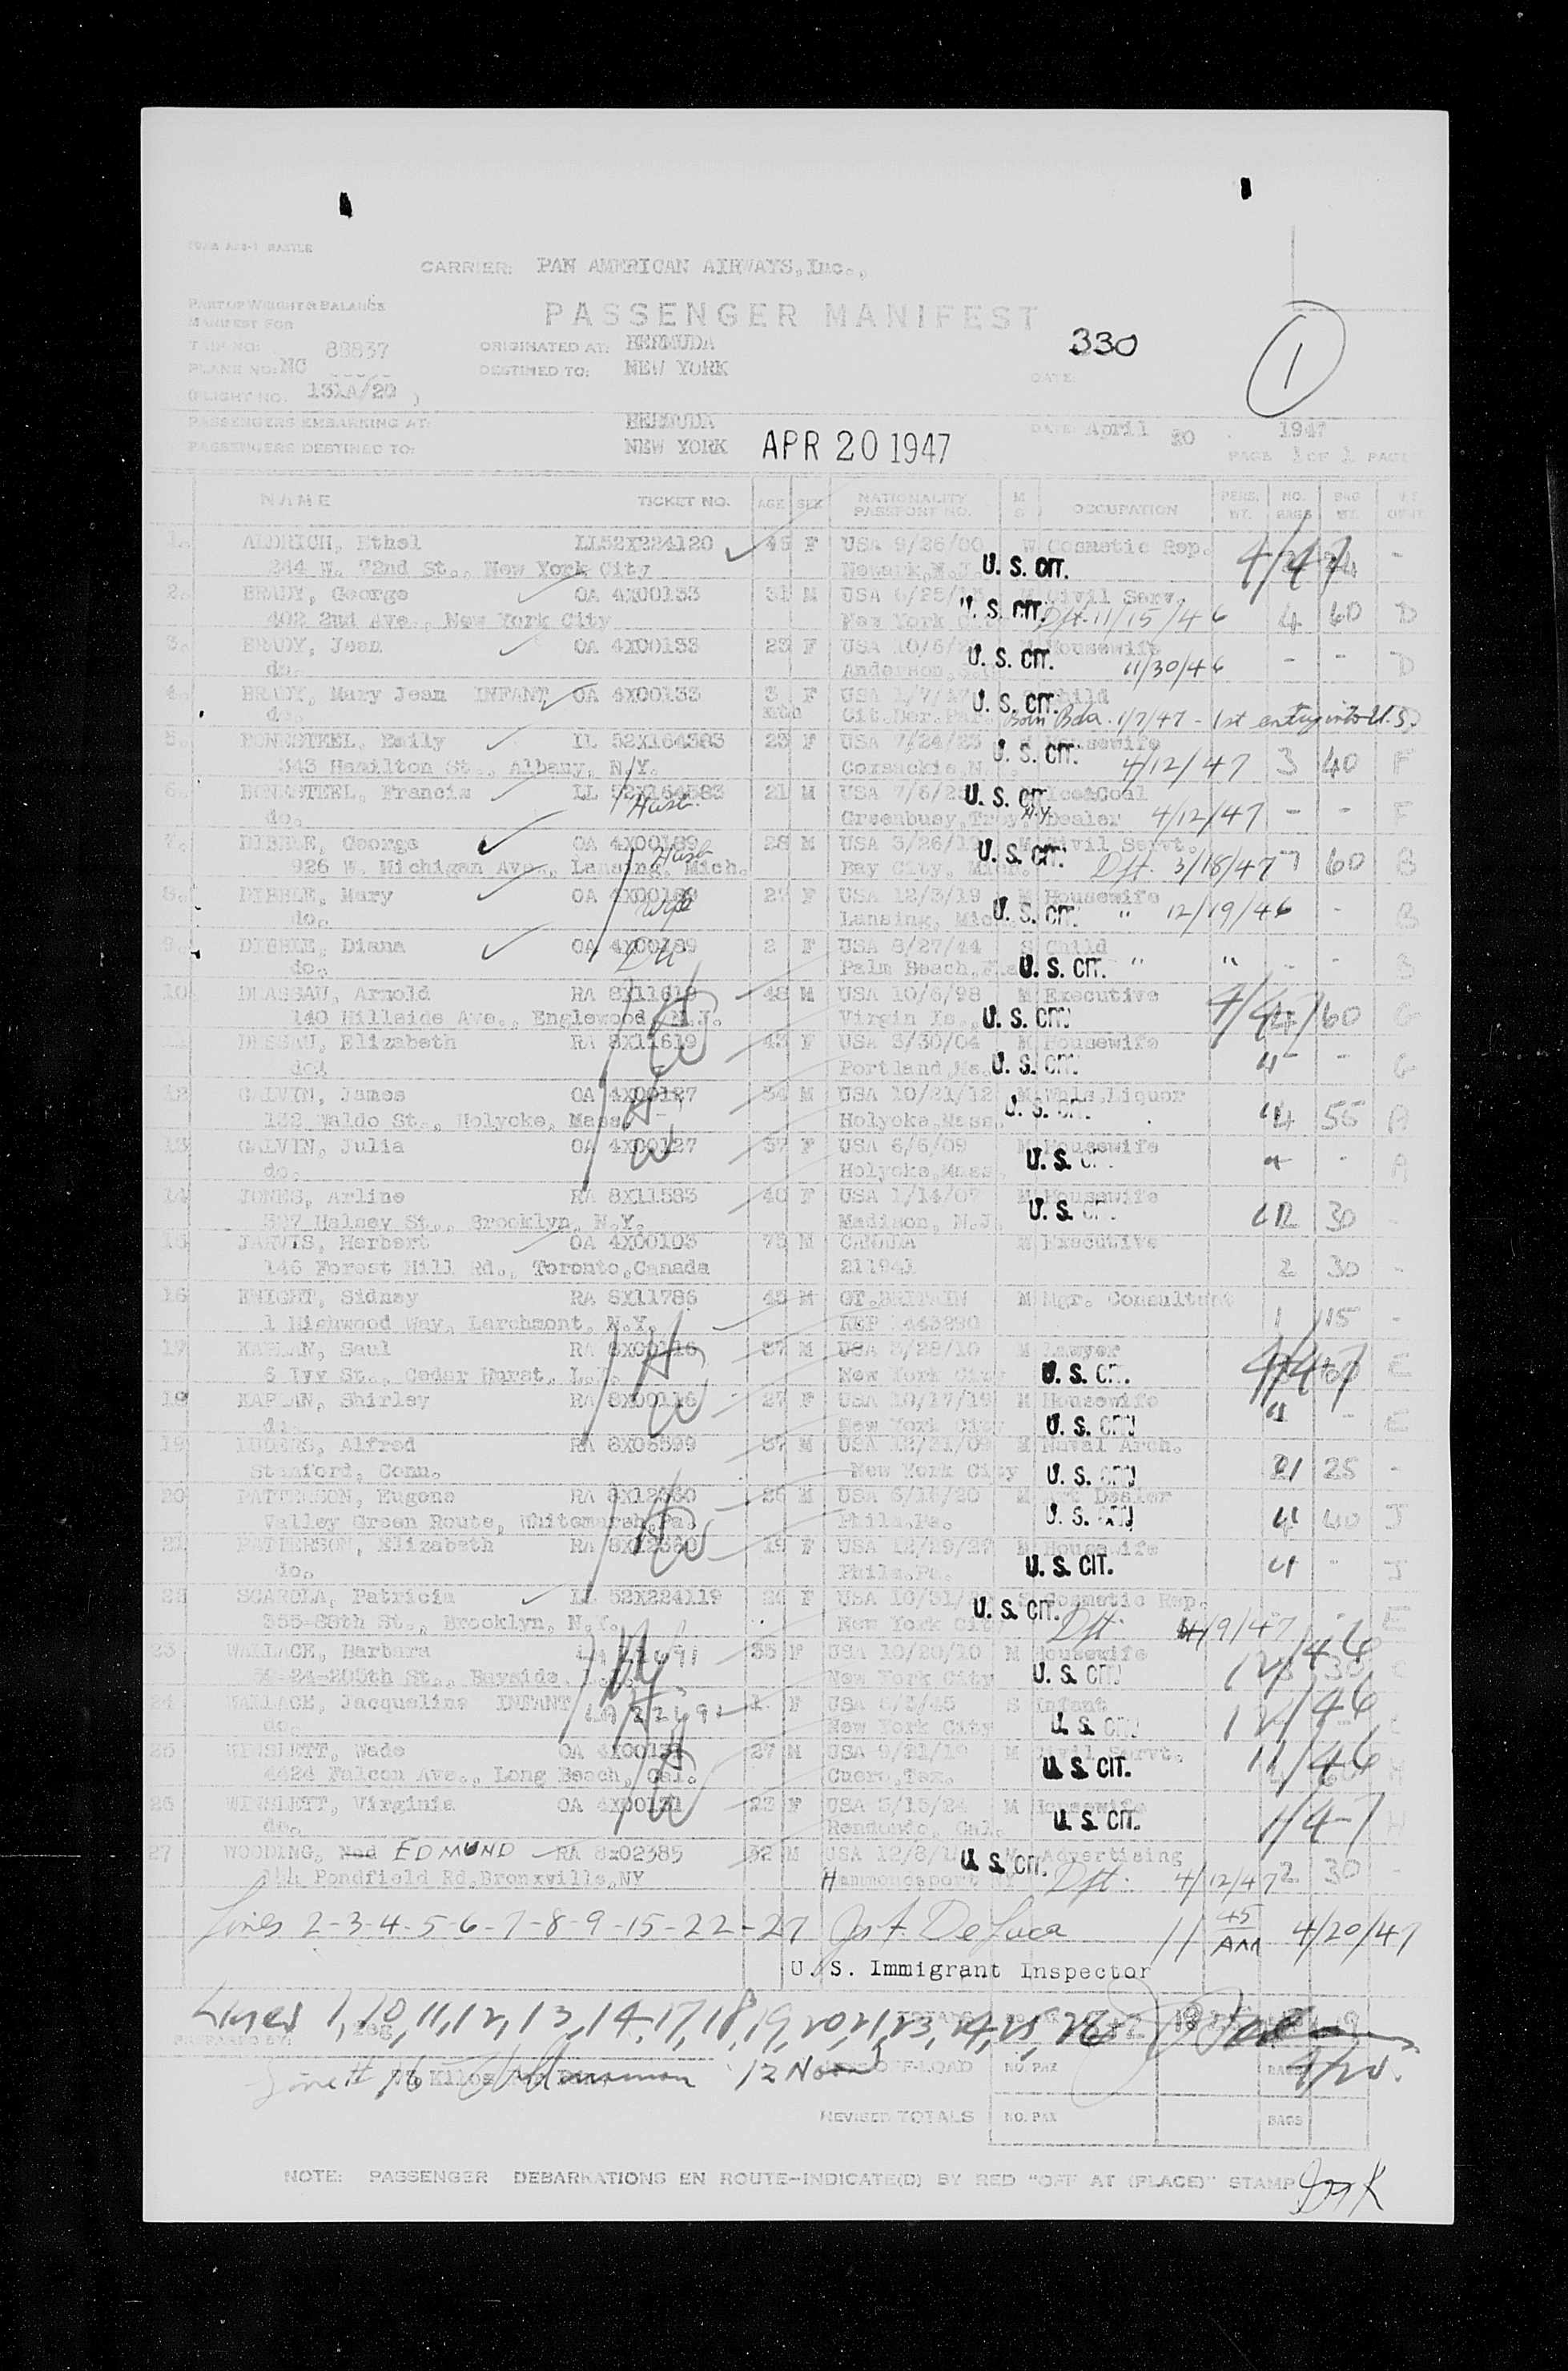 CARRIER: PAN AMERICAN AIRWAYS, Inc.,
PART OF WEIGHT & BALANCE
MANIFEST FOR
PASSENGER MANIFEST
330
1
TRIP NO:
88837
ORIGINATED AT: BERMUDA
PLANE NO: NC
DESTINED TO: NEW YORK
DATE:
(FLIGHT NO. 131A/20 )
PASSENGERS EMBARKING AT: BERMUDA
DATE: April 20 1947
PASSENGERS DESTINED TO: NEW YORK APR 20 1947
PAGE 1 OF 1 PAGE
NAME TICKET NO. AGE SEX NATIONALITY PASSPORT NO. M S OCCUPATION PERS. WT. NO. BAGS BAG WT.
1. ALDRICH, Ethel LL52X224120 46 F USA 9/26/00 W Cosmetic Rep. 4/47 -
244 W. 72nd St., New York City Newark, N.J. U. S. CIT.
2. BRADY, George OA 4X00133 31 M Civil Serv.
402 2nd Ave., New York City U. S. CIT. Dft. 11/15/46 4 60 D
3. BRADY, Jean OA 4X00133 23 F Housewife
do. U. S. CIT. 11/30/46 - - D
4. BRADY, Mary Jean INFANT OA 4X00133 3 F Child
do. mths Cit. Der. Par. U. S. CIT. Born Bda. 1/7/47 - 1st entry into U.S.
5. BONESTEEL, Emily LL 52X164583 23 F USA 7/24/23 Housewife
343 Hamilton St., Albany, N.Y. Coxsackie, N. U. S. CIT. 4/12/47 3 40 F
6. BONESTEEL, Francis LL 52X164583 21 M Ice&Coal
do. Husb. Greenbush, Troy, N.Y. U. S. CIT. Dealer 4/12/47 - - F
7. DIBBLE, George OA 4X00189 28 M Civil Servt.
926 W. Michigan Ave., Lansing, Mich. Husb Bay City, Mich. U. S. CIT. Dft. 3/18/47 7 60 B
8. DIBBLE, Mary OA 4X00189 27 F USA 12/3/19 M Housewife
do. Wife Lansing, Mich. U. S. CIT. " 12/19/46 - B
9. DIBBLE, Diana OA 4X00189 2 F USA 8/27/44 S Child
do. Palm Beach, Fla U. S. CIT. " " - - B
10 Arnold RA 8X11619 48 M USA 10/6/98 M Executive
140 Hillside Ave., Englewood, N.J. Virgin Is., U. S. CIT. 4/47 60 G
11 DESSAU, Elizabeth RA 8X11619 43 F USA 3/30/04 M Housewife
do. Portland, U. S. CIT. " - G
12 GALVIN, James OA 4X00127 34 M USA 10/21/12 M Whls. Liquor
132 Waldo St., Holyoke, Mass. Holyoke, Mass. U. S. CIT. 4 55 A
13 GALVIN, Julia OA 4X00127 37 F USA 6/6/09 M Housewife
do. Holyoke, Mass. U. S. " - A
14 JONES, Arline RA 8X11583 40 F USA 1/14/07 M Housewife
Halsey St., Brooklyn, N.Y. Madison, N.J. U. S. 2 30 -
15 JARVIS, Herbert OA 4X00103 73 M CANADA M Executive
146 Forest Hill Rd., Toronto, Canada 2 30 -
16 KNIGHT, Sidney RA 8X11786 45 M GT.BRITAIN M Mgr. Consultant
1 Highwood Way, Larchmont, N.Y. 1 15 -
17 KAPLAN, Saul RA 8X00116 37 M USA 3/28/10 M Lawyer
6 Ivy St., Cedar Hurst, L.I. New York City U. S. CIT. 4/47 E
18 KAPLAN, Shirley RA 8X00116 27 F USA 10/17/19 M Housewife
do. New York City U. S. CIT. " - E
19 Alfred RA 8X08599 37 M USA 12/21/09 M Naval Arch.
Stamford, Conn. New York City U. S. 25 -
20 PATTERSON, Eugene RA 8X12360 26 M Dealer
Valley Green Route, Whitemarsh, Pa. Phila. Pa. U. S. 40 J
21 PATTERSON, Elizabeth RA 8X12360 19 F USA 12/29/27 M Housewife
do. Phila. Pa. U. S. CIT. " - J
22 SCAROLA, Patricia LL 52X224119 26 F Cosmetic Rep.
355-88th St., Brooklyn, N.Y. New York City U. S. CIT. Dft. 4/9/47 -
23 WALLACE, Barbara 36 F USA 10/20/10 M Housewife
St., Bayside, New York City U. S. CIT. 12/46
24 WALLACE, Jacqueline INFANT F S Infant
do. New York City U. S. 12/46
25 WINSLETT, Wade OA 4X00131 27 M USA 9/21/19 M Civil Servt.
4424 Falcon Ave., Long Beach, Cal. Cuero, Tex. U. S. CIT. 11/46 H
26 WINSLETT, Virginia OA 4X00131 23 F USA 3/15/24 M Housewife
do. Redondo, Cal. U. S. CIT. 1/47 H
27 WOODING, Ned EDMUND RA 8x02385 32 M Advertising
Pondfield Rd, Bronxville, NY Hammondsport NY U. S. CIT. Dft. 4/12/47 2 30 -
Lines 2-3-4-5-6-7-8-9-15-22-27 Jos A. DeLuca 11 45 AM 4/20/47
U. S. Immigrant Inspector
Lines 1, 10, 11, 12, 13, 14, 17, 18, 19, 20, 21, 23, 24, 25, 26
PREPARED BY:
Line # 16 12 Noon
OFF-LOAD NO. PAX BAGS 4/20.
REVISED TOTALS NO. PAX BAGS
NOTE: PASSENGER DEBARKATIONS EN ROUTE-INDICATE(D) BY RED "OFF AT (PLACE)" STAMP